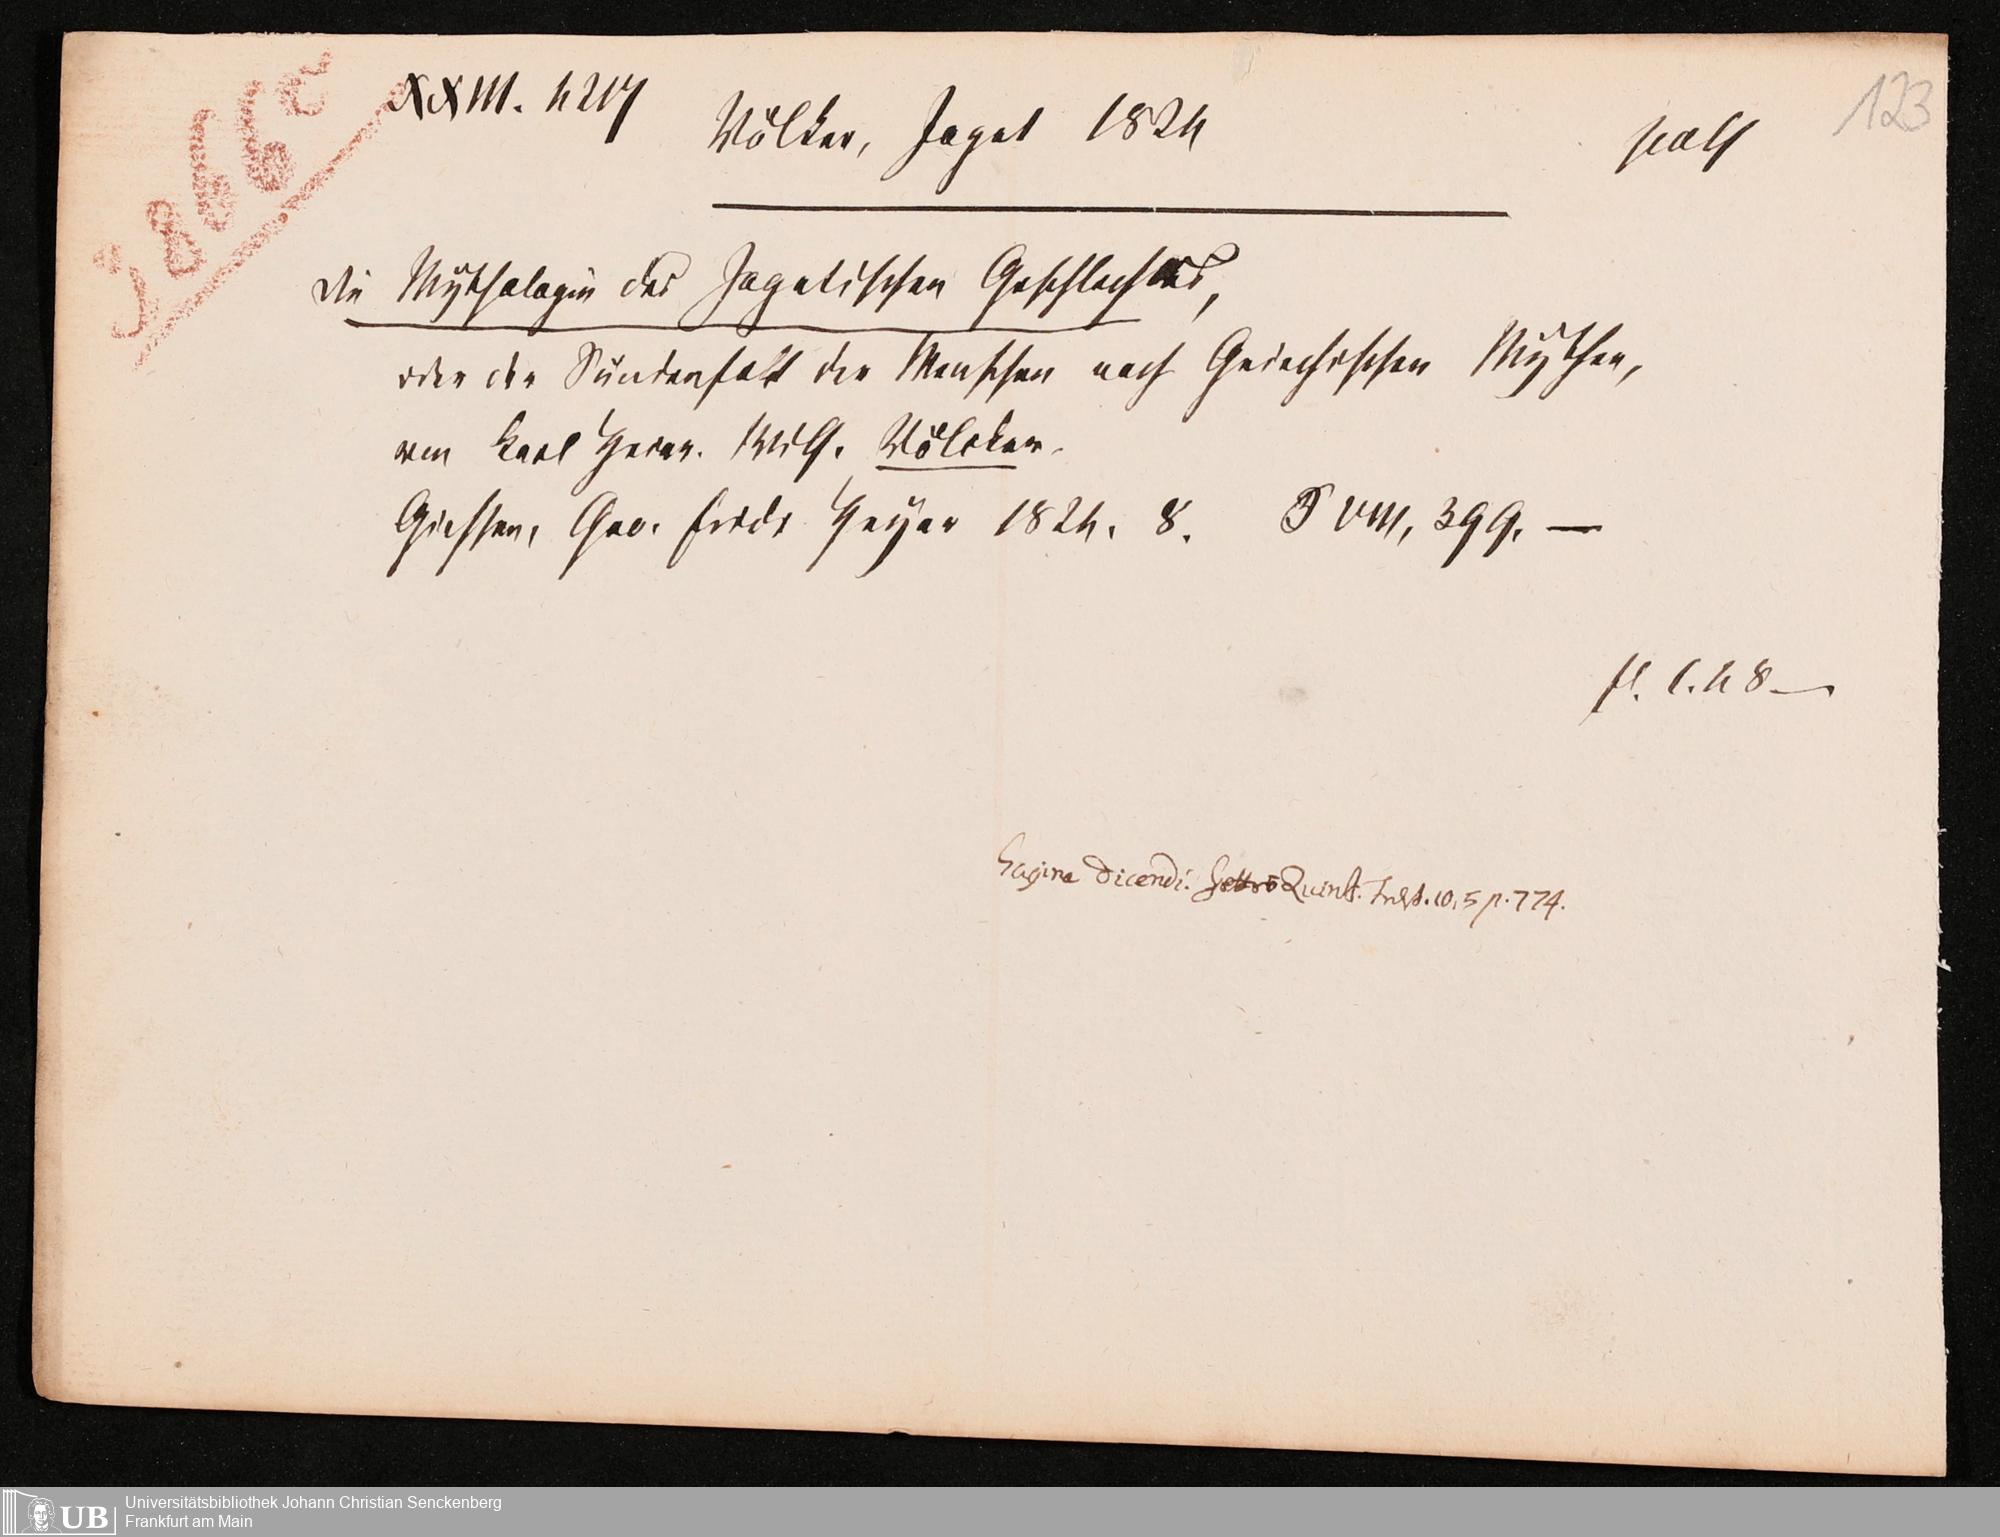 3866c
XXIII. 4217
Völker, Japet 1824
123
Die Mythologie des Japetischen Geschlechtes,
oder der Sündenfall der Menschen nach Griechischen Mythen,
von Karl Heinr. Wilh. Völcker.
Giessen, Geo. Friedr Heyer 1824. 8. S VIII, 399. —
fl. 1.48—
Sagina dicendi. Quint. Inst. 10, 5 p. 774.
UB Universitätsbibliothek Johann Christian Senckenberg
Frankfurt am Main